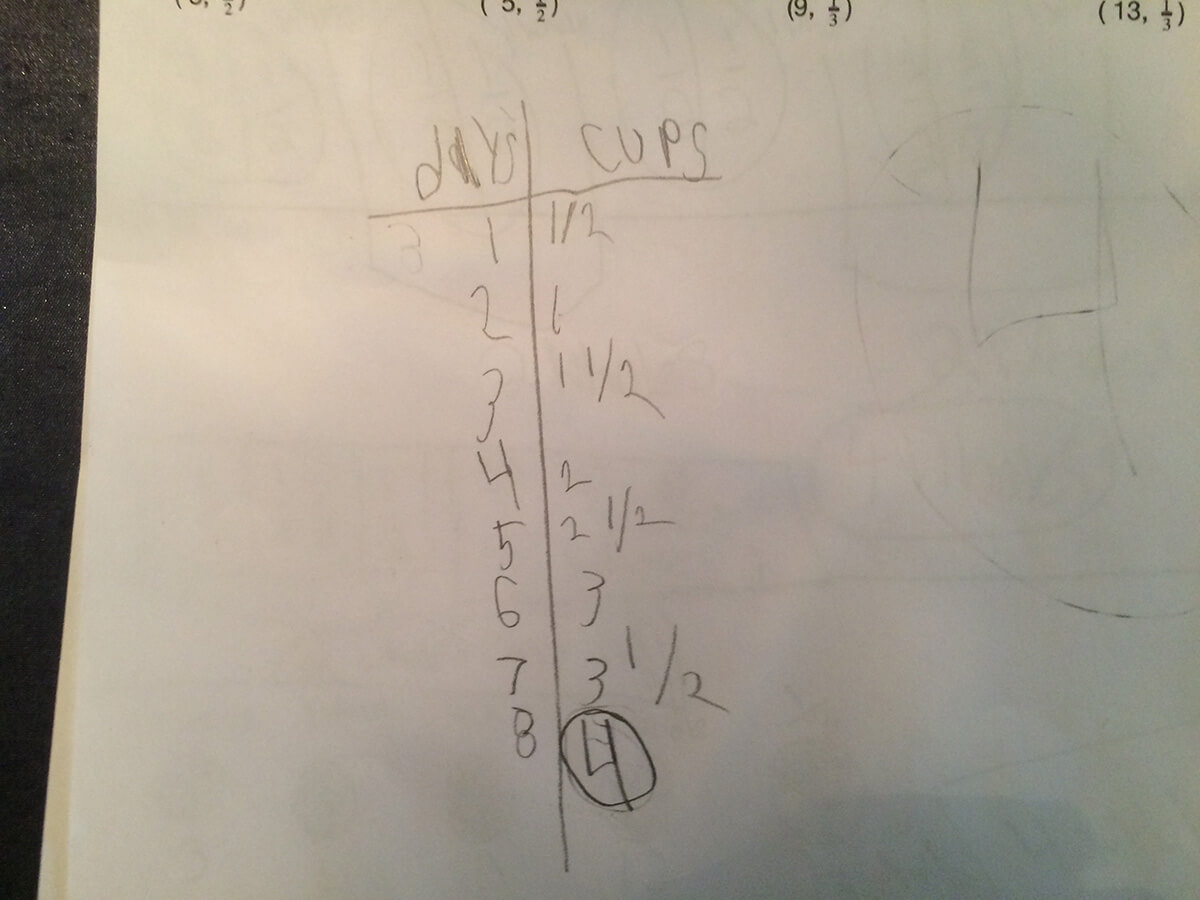 (5, 1/2) (9, 1/3) (13, 1/3)
days cups
1 1/2
2 1
3 1 1/2
4 2
5 2 1/2
6 3
7 3 1/2
8 4